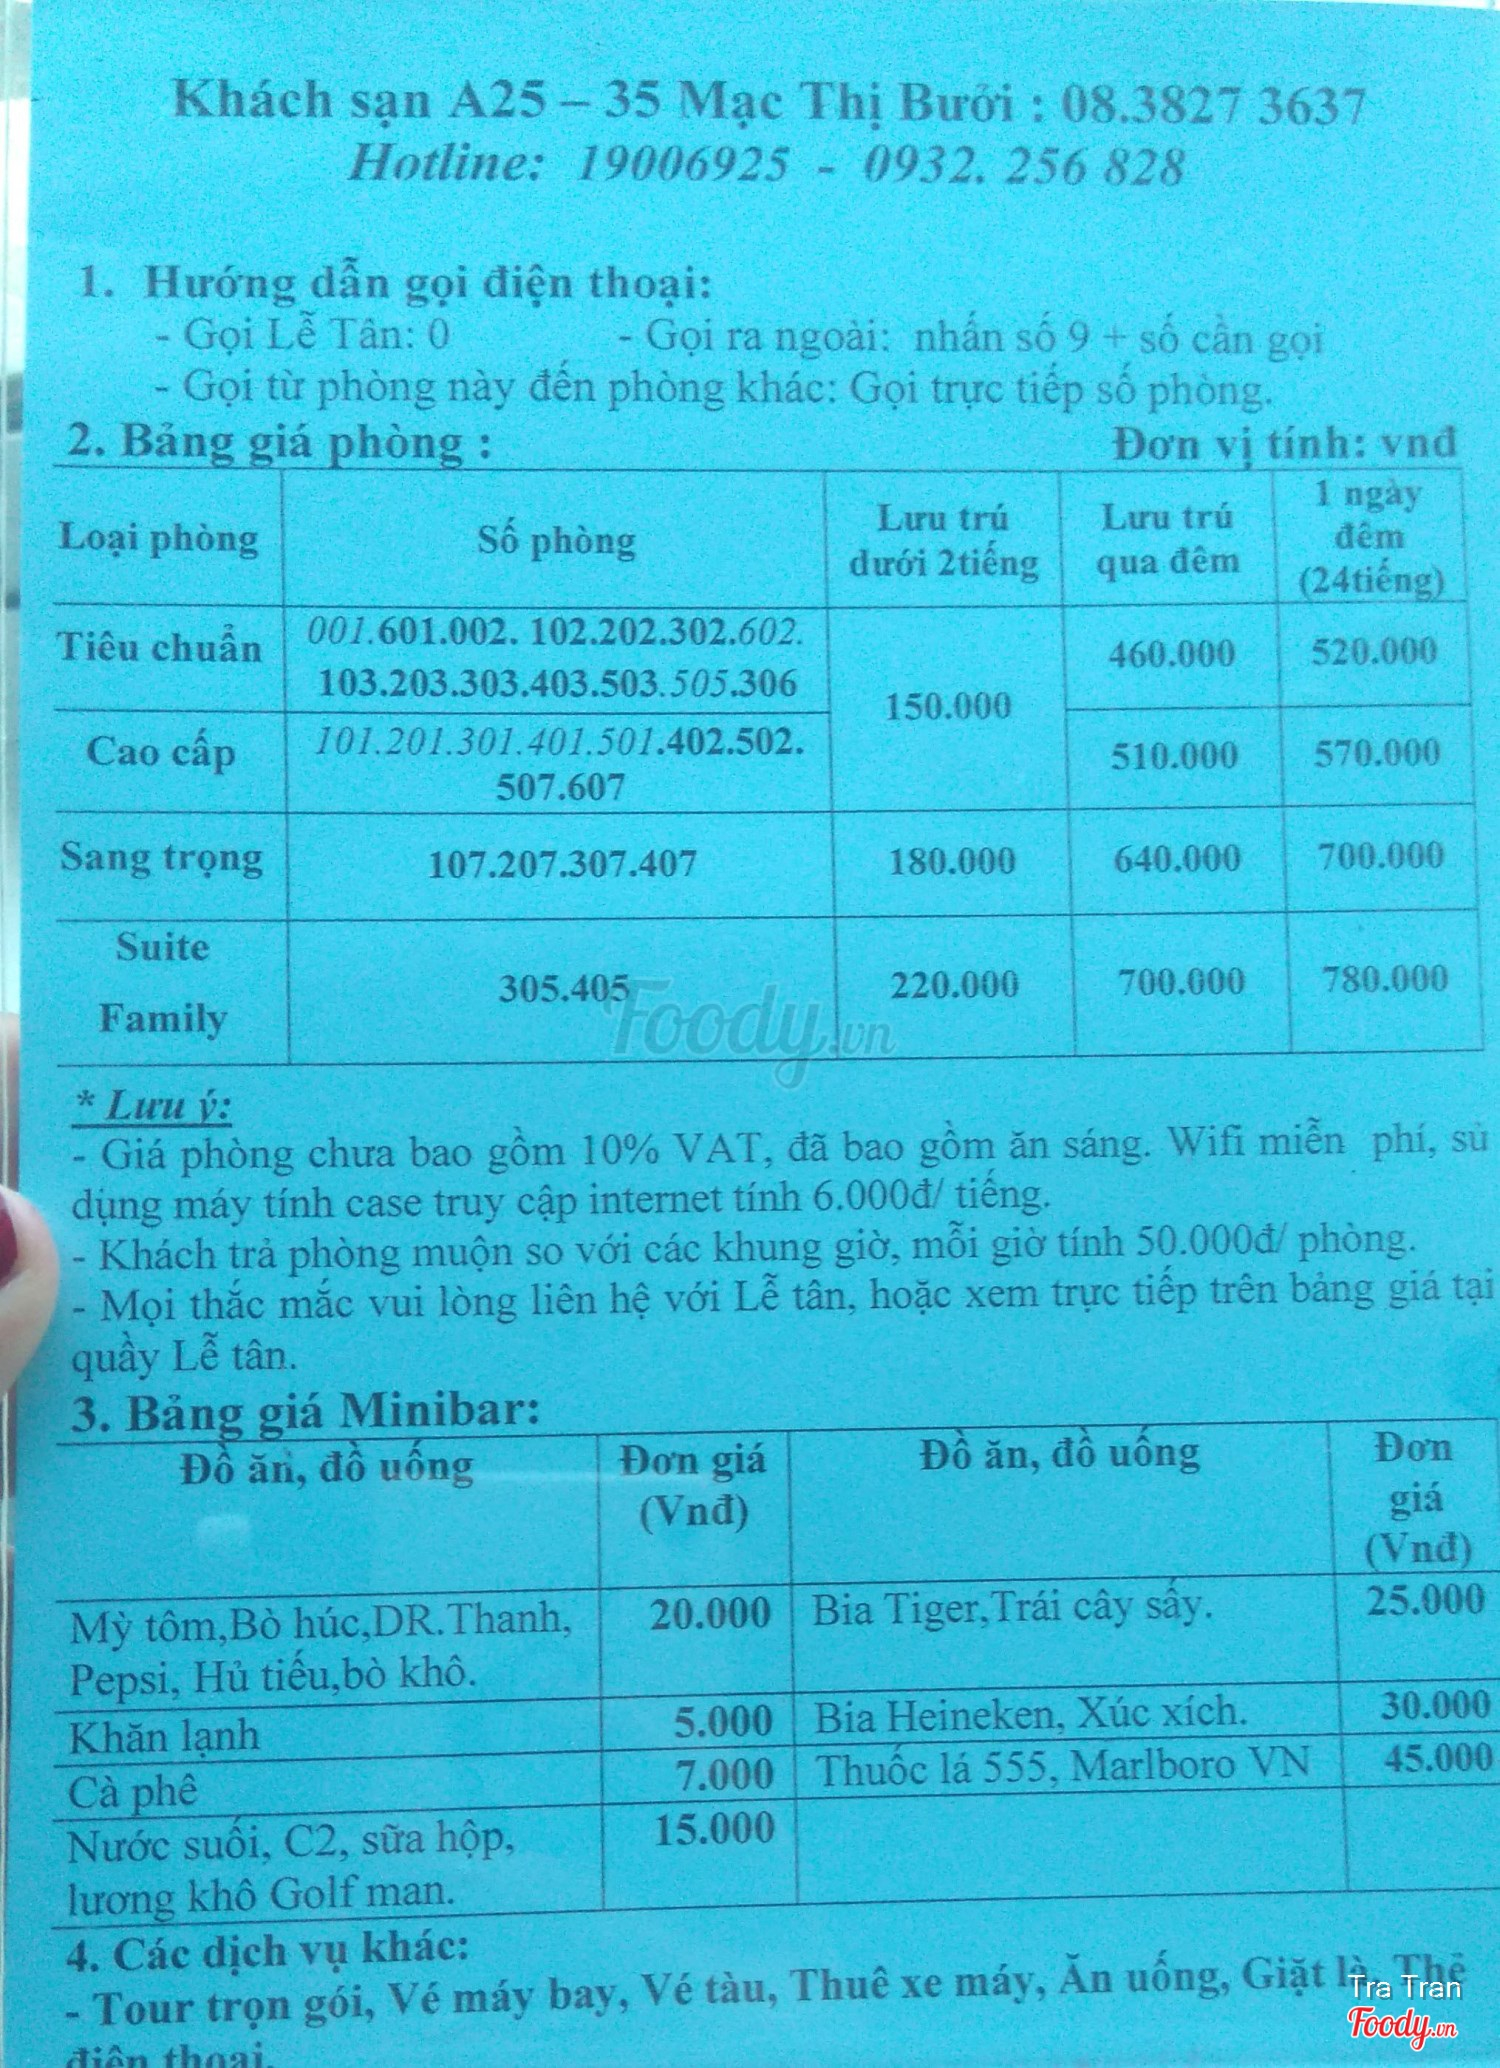 Khách sạn A25 – 35 Mạc Thị Bưởi : 08.3827 3637
Hotline: 19006925 - 0932. 256 828
1. Hướng dẫn gọi điện thoại:
- Gọi Lễ Tân: 0 - Gọi ra ngoài: nhấn số 9 + số cần gọi
- Gọi từ phòng này đến phòng khác: Gọi trực tiếp số phòng.
2. Bảng giá phòng : Đơn vị tính: vnđ
Loại phòng
Số phòng
Lưu trú
dưới 2tiếng
Lưu trú
qua đêm
1 ngày
đêm
(24tiếng)
Tiêu chuẩn
001.601.002. 102.202.302.602.
103.203.303.403.503.505.306
150.000
460.000
520.000
Cao cấp
101.201.301.401.501.402.502.
507.607
510.000
570.000
Sang trọng
107.207.307.407
180.000
640.000
700.000
Suite
Family
305.405
220.000
700.000
780.000
Foody.vn
* Lưu ý:
- Giá phòng chưa bao gồm 10% VAT, đã bao gồm ăn sáng. Wifi miễn phí, sử
dụng máy tính case truy cập internet tính 6.000đ/ tiếng.
- Khách trả phòng muộn so với các khung giờ, mỗi giờ tính 50.000đ/ phòng.
- Mọi thắc mắc vui lòng liên hệ với Lễ tân, hoặc xem trực tiếp trên bảng giá tại
quầy Lễ tân.
3. Bảng giá Minibar:
Đồ ăn, đồ uống
Đơn giá
(Vnđ)
Đồ ăn, đồ uống
Đơn
giá
(Vnđ)
Mỳ tôm,Bò húc,DR.Thanh,
Pepsi, Hủ tiếu,bò khô.
20.000
Bia Tiger,Trái cây sấy.
25.000
Khăn lạnh
5.000
Bia Heineken, Xúc xích.
30.000
Cà phê
7.000
Thuốc lá 555, Marlboro VN
45.000
Nước suối, C2, sữa hộp,
lương khô Golf man.
15.000
4. Các dịch vụ khác:
- Tour trọn gói, Vé máy bay, Vé tàu, Thuê xe máy, Ăn uống, Giặt là, Thẻ
điện thoại.
Tra Tran
Foody.vn